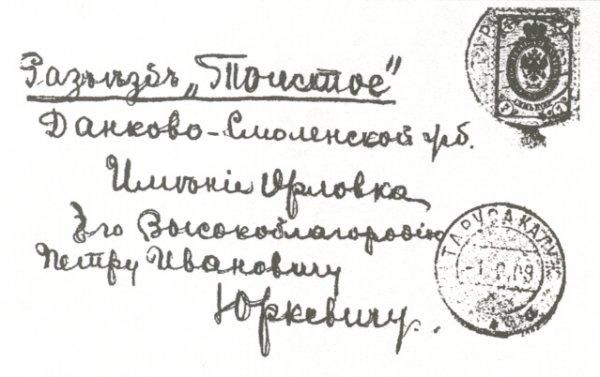 Разъѣздъ „Толстое“
Данково-Смоленской ж.д.
Имѣніе Орловка
Его Высокоблагородію
Петру Ивановичу
Юркевичу.
ТАРУСА КАЛУЖ